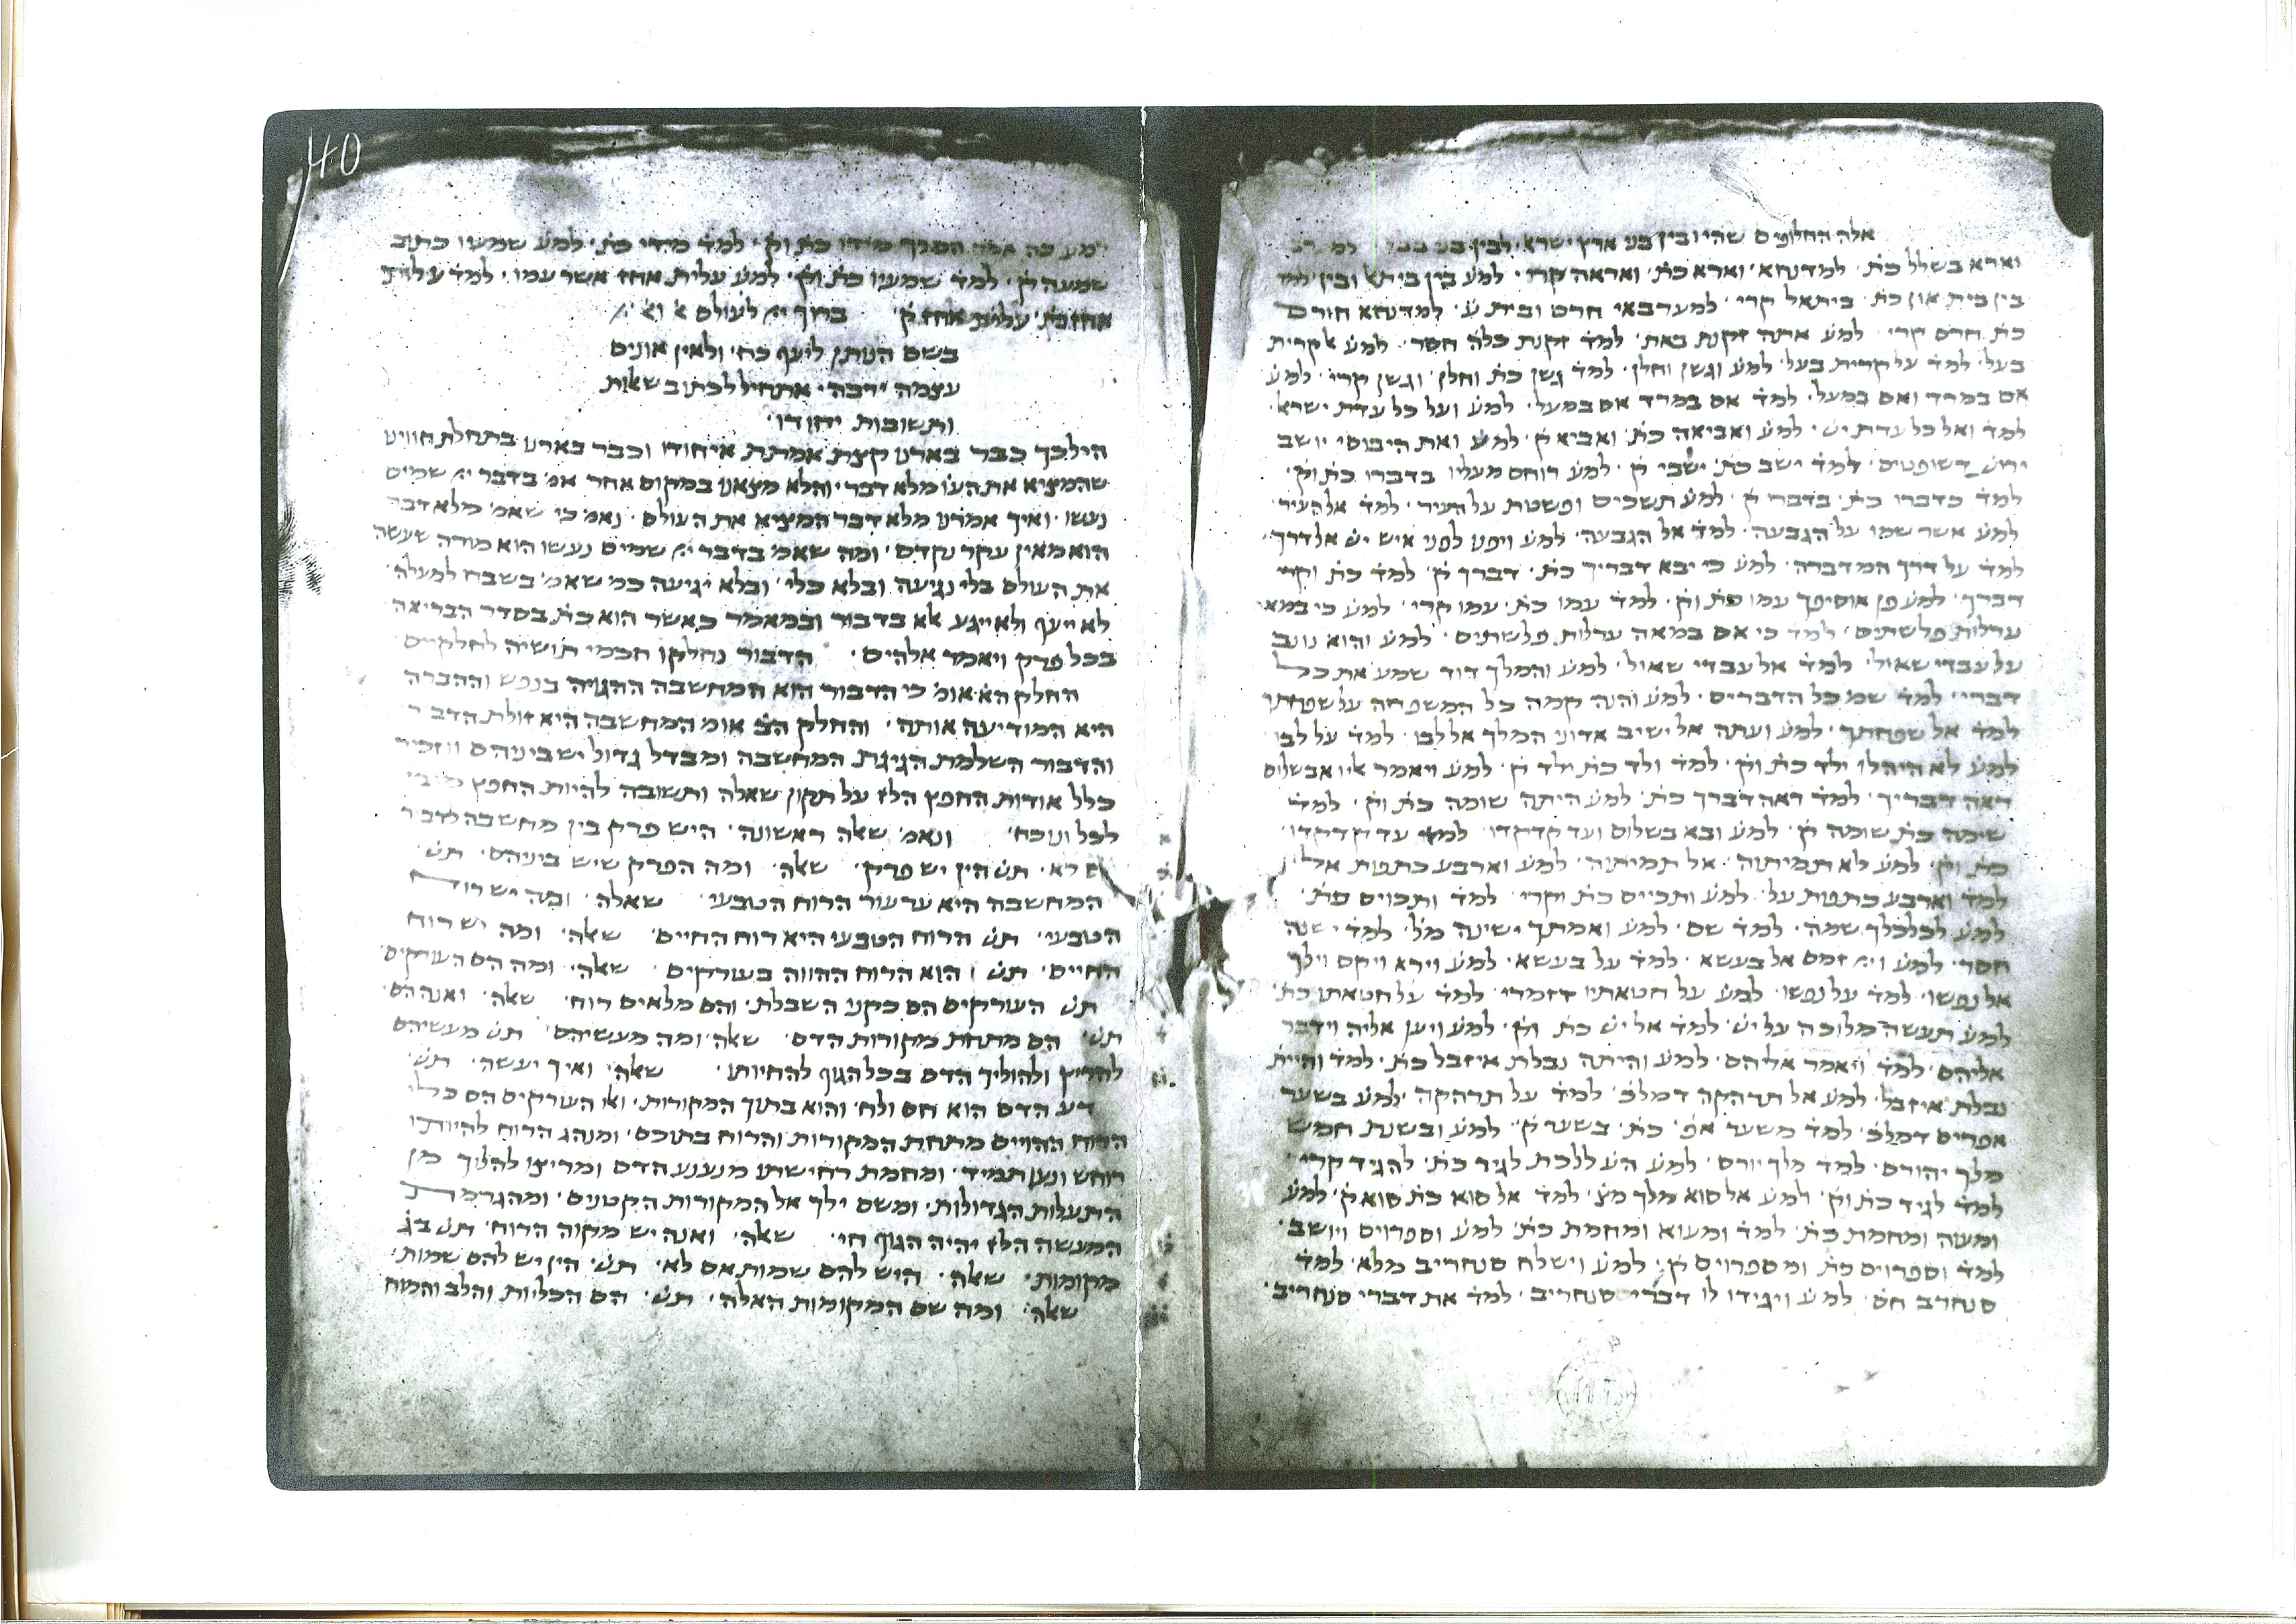 אלה החלופים שהיו ובין בני ארץ ישרא׳ לבין בני
וארא בשלל כת׳ למדנחא׳ וארא כת׳ ואראה קרי׳ למע׳ בין ביתא׳ ובין
בין בית און כת׳ ביתאל קרי׳ למערבאי חרס ובית ע׳ למדנחא חורס
כת׳ חרס קרי׳ למע׳ אתה זקנת באת׳ למד׳ זקנת כלה חסר׳ למע׳ קרית
בעל׳ למד׳ על קרית בעל׳ למע׳ וגשן וחלן׳ למד׳ גשן כת׳ וחלן׳ וגשן קרי׳ למע׳
אם במרד ואם במעל׳ למד׳ אם במרד אם במעל׳ למע׳ ועל כל עדת ישרא׳
למד׳ ואל כל עדת יש׳ למע׳ ואביאה כת׳ ואביא ק׳ למע׳ ואת היבוסי יושב
ירוש׳ דשופטים׳ למד׳ ישב כת׳ ישבי ק׳ למע׳ רוחם מעליו בדברו כת׳ וק׳
למד׳ כדברו כת׳ בדברי ק׳ למע׳ תשכים ופשטת על העיר׳ למד׳ אל העיר׳
למע׳ אשר שמו על הגבעה׳ למד׳ אל הגבעה׳ למע׳ ויפנו לפני איש יש׳ אל דרך׳
למד׳ על דרך המדברה׳ למע׳ כי יבא דבריך כת׳ דברך ק׳ למד׳ כת׳ וקרי
דברך׳ למע׳ פן אוסיפך עמו כת׳ וק׳ למד׳ עמו כת׳ עמו קרי׳ למע׳ כי במאה
ערלות פלשתים׳ למד׳ כי אם במאה ערלות פלשתים׳ למע׳ והוא נצב
על עבדי שאול׳ למד׳ אל עבדי שאול׳ למע׳ והמלך דוד שמע את כל
דברי׳ למד׳ שמ׳ כל הדברים׳ למע׳ והנה קמה כל המשפחה על שפחתך
למד׳ אל שפחתך׳ למע׳ ועתה אל ישיב אדוני המלך אל לבו׳ למד׳ על לבו׳
למע׳ לא היה לו ילד כת׳ וק׳ למד׳ ולד כת׳ ילד ק׳ למע׳ ויאמר אליו אבשלום
ראה דבריך׳ למד׳ ראה דברך כת׳ למע׳ היתה שומה כת׳ וק׳ למד׳
שימה כת׳ שומה ק׳ למע׳ ובא בשלום ועד קדקדו׳ למד׳ עד קדקדו׳
כת׳ וק׳ למע׳ לא תמיתוה׳ אל תמיתוה׳ למע׳ וארבע כתפות אל׳
למד׳ וארבע כתפות על׳ למע׳ ותכיים כת׳ וקרי׳ למד׳ ותכוים כת׳
למע׳ לכלכלך שמה׳ למד׳ שם׳ למע׳ ואמתך ישינה מל׳ למד׳ ישנה
חסר׳ למע׳ ויי׳ זמם אל בעשא׳ למד׳ על בעשא׳ למע׳ וירא ויקם וילך
אל נפשו׳ למד׳ על נפשו׳ למע׳ על חטאתיו דזמרי׳ למד׳ על חטאתו כת׳
למע׳ תעשה מלוכה על יש׳ למד׳ אל יש׳ כת׳ וק׳ למע׳ ויען אליה וידבר
אליהם׳ למד׳ ויאמר אליהם׳ למע׳ והיתה נבלת איזבל כת׳ למד׳ והיית
נבלת איזבל׳ למע׳ אל תרהקה דמלכ׳ למד׳ על תרהקה׳ למע׳ בשער
אפרים דמלכ׳ למד׳ משער אפ׳ כת׳ בשער ק׳ למע׳ ובשנת חמש
מלך יהורם׳ למד׳ מלך יורם׳ למע׳ הע׳ ללכת לגיד כת׳ להגיד קרי׳
למד׳ לגיד כת׳ וק׳ למע׳ אל סוא מלך מצ׳ למד׳ אל סוא כת׳ סוא ק׳ למע׳
ומעוה ומחמת כת׳ למד׳ ומעוא ומחמת כת׳ למע׳ וספרוים ויושב׳
למד׳ וספרוים כת׳ ומספרוים ק׳ למע׳ וישלח סנחריב מלא׳ למד׳
סנחרב חס׳ למע׳ ויגידו לו דברי סנחריב׳ למד׳ את דברי סנחריב׳
40
כה אמר המלך מידו כת׳ וק׳ למד׳ מידי כת׳ למע׳ שמעו כתוב
שמעה ק׳ למד׳ שמעיו כת׳ וק׳ למע׳ עלית אחז אשר עמו׳ למד׳ עליות
אחז כת׳ עלית אחז ק׳ ברוך יי׳ לעולם א׳ וא׳
בשם הנותן ליעף כח׳ ולאין אונים
עצמה ירבה׳ אתחיל לכתוב שאלות
ותשובות יחודו׳
הילכך כבר בארנו קצת אמתת איחודו וכבר בארנו בתחלת חווינו
שהמציא את העו׳ מלא דבר׳ והלא מצאנו במקום אחר אמ׳ בדבר יי׳ שמים
נעשו׳ ואיך אמרנו מלא דבר המציא את העולם׳ נאמ׳ כי שאמ׳ מלא דבר
הוא מאין עקר נקדם׳ ומה שאמ׳ בדבר יי׳ שמים נעשו הוא מורה שעשה
את העולם בלי נגיעה ובלא כלי׳ ובלא יגיעה כמ׳ שאמ׳ בשבח למעלה׳
לא ייעף ולא ייגע אלא בדבור ובמאמר כאשר הוא כת׳ בסדר הבריאה
בכל פרק ויאמר אלהים׳ הדבור נחלקו חכמי תושיה לחלקים
החלק הא׳ אומ׳ כי הדבור הוא המחשבה ההגויה בנפש וההברה
היא המודיעה אותה׳ והחלק הב׳ אומ׳ המחשבה היא זולת הדבור
והדבור השלמת הגיגת המחשבה ומבדל גדול יש ביניהם ונזכיר
כלל אודות החפץ הלז על תקון שאלה ותשובה להיות החפץ
לכל ונוכח׳ ונאמ׳ שאלה ראשונה׳ היש פרק בין מחשבה לדבור
אם לא׳ תש׳ הין יש פרק׳ שאלה׳ ומה הפרק שיש ביניהם׳ תש׳
המחשבה היא ערעור הרוח הטבעי׳ שאלה׳ ומה יש רוח
הטבעי׳ תש׳ הרוח הטבעי היא רוח החיים׳ שאלה׳ ומה יש רוח
החיים׳ תש׳ הוא הרוח ההווה בעורקים׳ שאלה׳ ומה הם העורקים׳
תש׳ העורקים הם כקני השבלת׳ והם מלאים רוח׳ שאלה׳ ואנה הם׳
תש׳ הם מתחת מקורות הדם׳ שאלה׳ ומה מעשיהם׳ תש׳ מעשיהם
להריץ ולהוליך הדם בכל הגוף להחיותו׳ שאלה׳ ואיך יעשה׳ תש׳
דע הדם הוא חם ולח׳ והוא בתוך המקורות׳ ואלו העורקים הם כלי
הרוח ההויים מתחת המקורות והרוח בתוכם׳ ומנהג הרוח להיותו
רוחש ונע תמיד׳ ומחמת רחישתו מנענע הדם ומריצו להלוך מן
התעלות הגדולות׳ ומשם ילך אל המקורות הקטנים׳ ומהגרמת
המעשה הלז יהיה הגוף חי׳ שאלה׳ ואנה יש מקוה הרוח׳ תש׳ בג׳
מקומות׳ שאלה׳ היש להם שמות אם לא׳ תש׳ הין יש להם שמות׳
שאלה׳ ומה שם המקומות האלה׳ תש׳ הם הכליות והלב והמוח